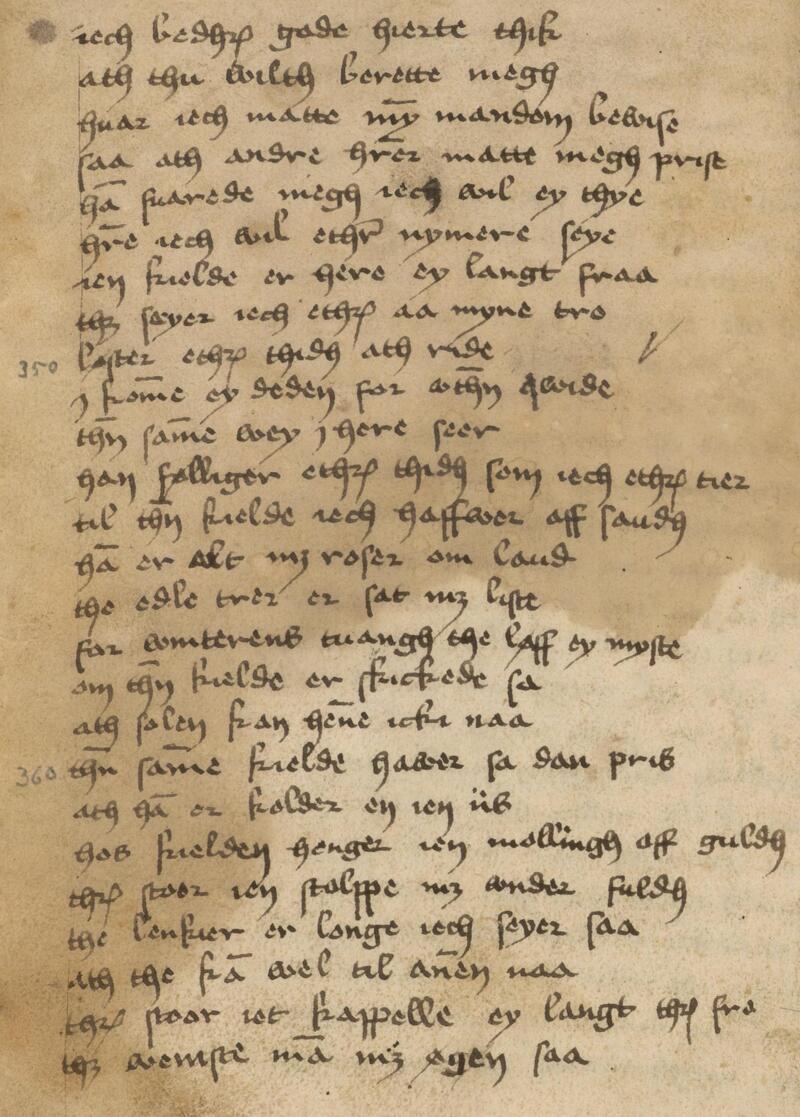 iech bedhr gode hierte thik
ath thu wilth berette megh
huar iech matte my̅ mandom bewise
saa ath andre hr̅er matte megh prise
ha̅ suarede megh iech wil ey thye
hr̅e iech wil ethr nymere seye
ien kielde er here ey langt fraa
thz seyer iech ethr aa myne tro
350 løster ethr thidh ath ride
j kom̅e ey deden for wth̅n qwide
th̅n sam̅e wey j here seer
han følliger ethr thidh som iech ethr tier
til th̅n kielde iech haffwer aff saudh
ha̅ er alt mz roser om laud
the edle trer er sat mz liste
for winterens tuangh the løff ey myste
om th̅n kielde er skickede sa
ath solen kan hen̅e icki naa
360 th̅n sam̅e kielde hawer sa dan pris
ath ha̅ er kolder en ien iis
hos kielden henger ien mollingh aff guldh
thr stoor ien stolppe mz wnder fuldh
the lenkier er longe iech seyer saa
ath the ka̅ wel til an̅en naa
thr stoor iet kappelle ey langt thr fra
thz weniste ma̅ mz øgen saa